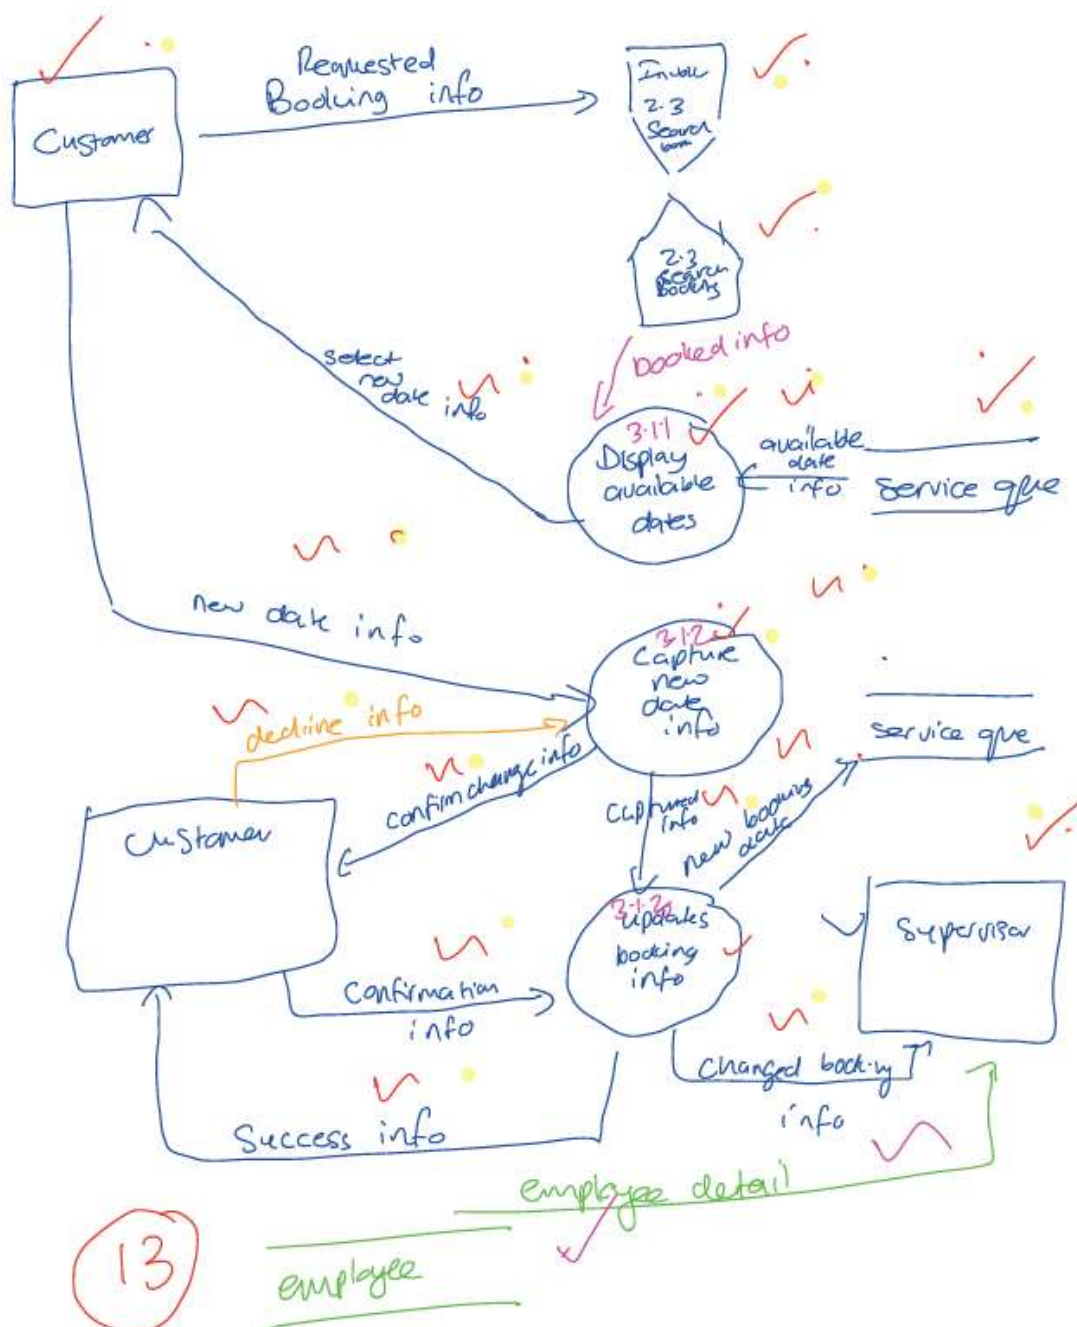 Requested
Booking info
Customer
Invoke
2.3
Search
2.3
Search
booking
booked info
select
new
date info
3.1.1
Display
available
dates
available
date
info
Service que
new date info
3.1.2
Capture
new
date
info
decline info
confirm change info
Service que
Captured
info
new booking
date
Customer
3.1.3
updates
booking
info
Supervisor
Confirmation
info
Changed booking
info
Success info
employee detail
13
employee